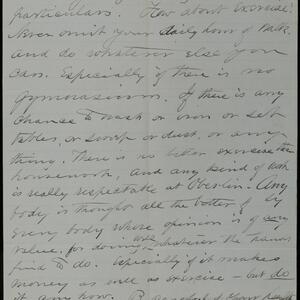 particulars. How about exercise?
Never omit your daily hour of walk,
and do whatever else you
can. Especially if there is no
gymnasium. If there is any
chance to wash or iron or set
tables, or sweep or dust, or any
thing. There is no better exercise than
housework, and any kind of work
is really respectable at Oberlin. Any
body is thought all the better of by
every body whose opinion is of any
value, for doing well whatever the hands
find to do. Especially if it makes
money as well as exercise - but do
it any how.